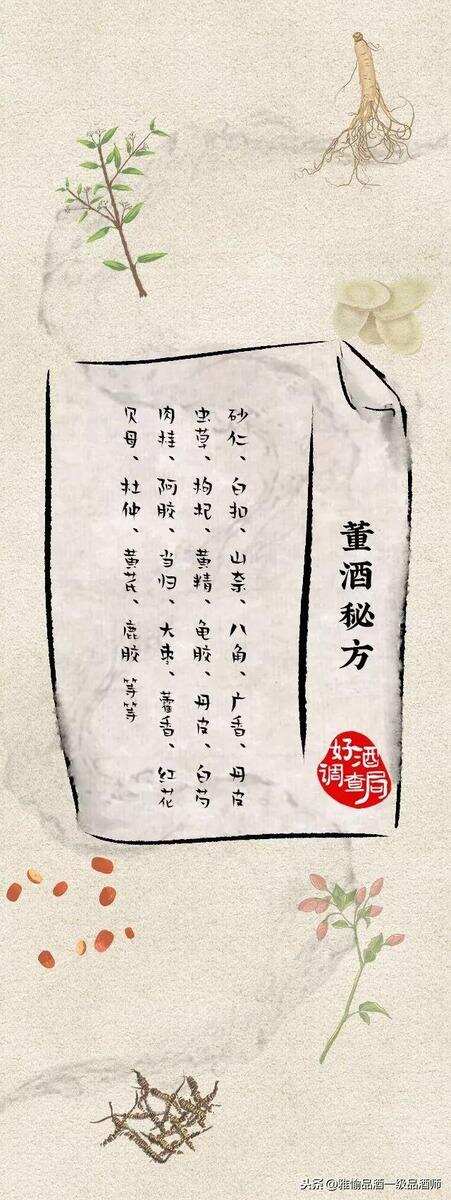 董酒秘方
好酒
调查局
砂仁、白扣、山奈、八角、广香、丹皮
虫草、枸杞、黄精、龟胶、丹皮、白芍
肉挂、阿胶、当归、大枣、藿香、红花
贝母、杜仲、黄芪、鹿胶等等
头条@雅愉品酒一级品酒师